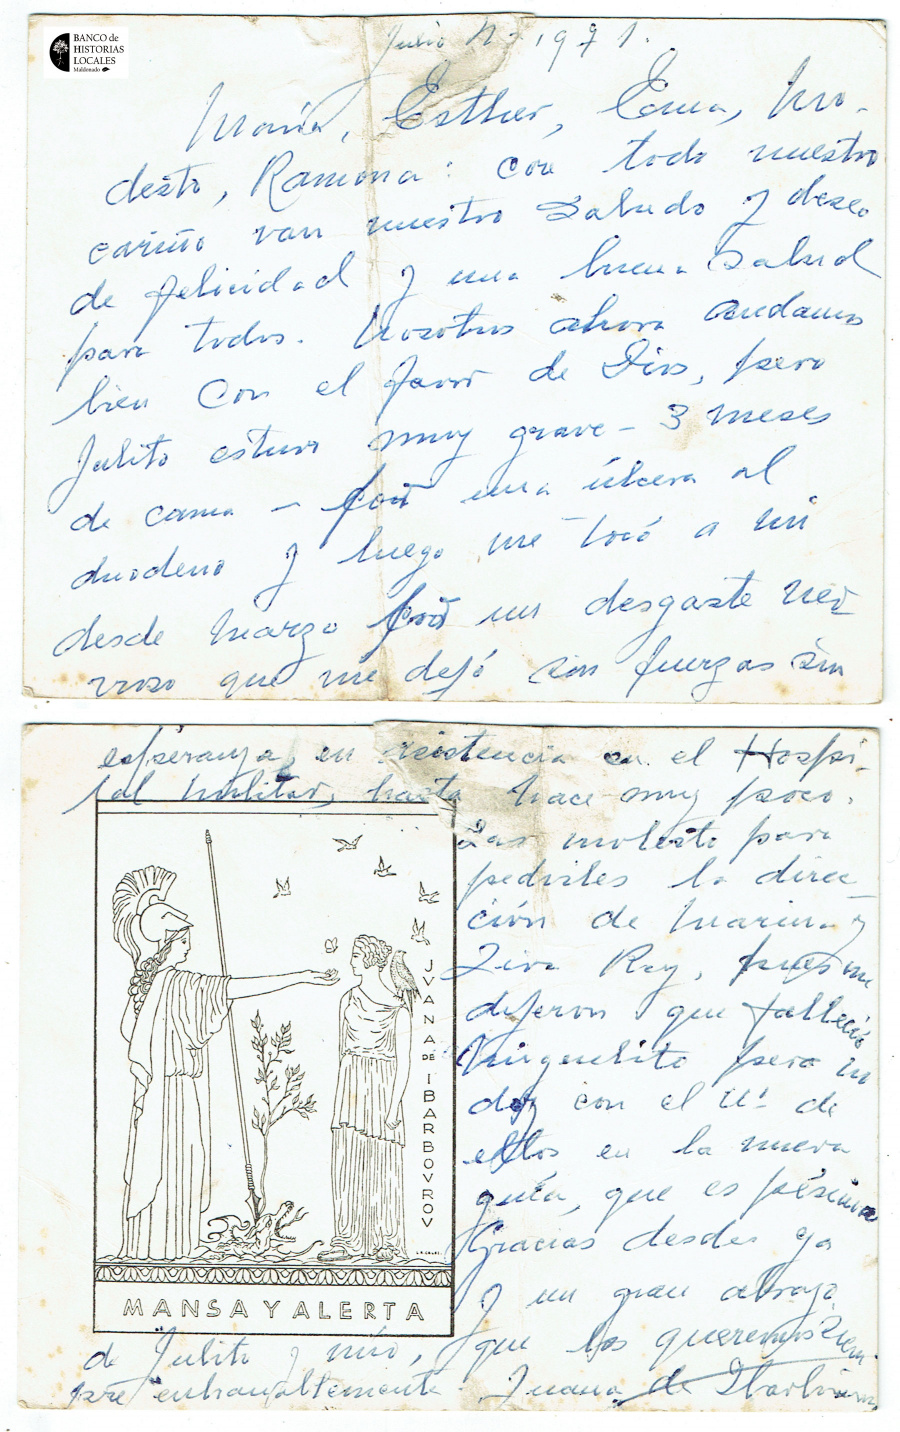 BANCO de
HISTORIAS
LOCALES
Maldonado
Julio 1971.
María, Esther, Ema, Mo-
desto, Ramona: con todo nuestro
cariño van nuestro saludo y deseo
de felicidad y una buena salud
para todos. Nosotros ahora andamos
bien con el favor de Dios, pero
Julito estuvo muy grave - 3 meses
de cama - por una úlcera al
duodeno y luego me tocó a mi
desde marzo por un desgaste ner
vioso que me dejó sin fuerzas sin
esperanza, en asistencia en el Hospi-
tal Militar, hasta hace muy poco.
Las molesto para
pedirles la direc
ción de Marina y
Rey, pues me
dijeron que falleció
pero no
doy con el Nº de
ellos en la nueva
guía, que es pésima
Gracias desdes ya
y un gran abrazo
de Julito y mío, que los queremos siem
pre entrañablemente. Juana de Ibarbourou
JVANA DE IBARBOVROV
MANSA Y ALERTA